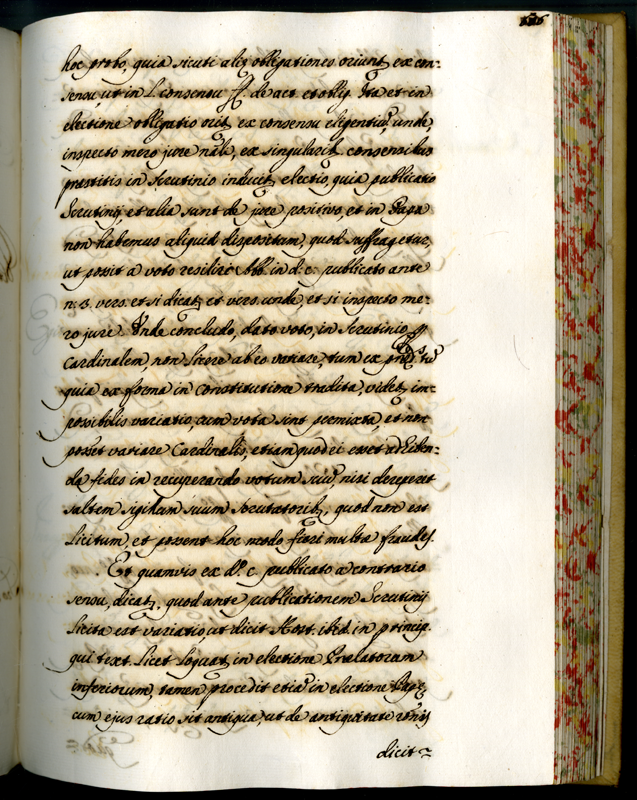 hoc probo, quia sicuti alię obligationes oriunt~ ex con-
sensu, ut in l. consensu ff. de act. et oblig. Ita et in
electione obligatio orit~ ex consensu eligentiu~, unde,
inspecto mero jure nãle, ex singularib~ consensibus
prestitis in Scrutinio inducit~ electio, quia publicatio
Scrutinij et alia sunt de jure positivo, et in Papa
non habemus aliquid dispositum, quod suffragetur,
ut possit a voto resilire Abb. in d. c. publicato ante
n. 3. vers. et si dicat~ et vers. unde, et si inspecto me-
ro jure. Unde concludo, dato voto, in Scrutinio p
Cardinalem, non licere ab eo variare, tum ex tu~
quia ex forma in Constitutione tradita, videt~ im-
possibilis variatio, cum vota sint permixta et non
posset variare Cardinalis, etiam quod ei esset adhiben-
da fides in recuperando votum suu~, nisi aperiret
saltem sigillum suum Scrutatorib~, quod non est
licitum, et possent hoc modo fieri multa fraudes.
Et quamvis ex d.º c. publicato a contrario
sensu, dicat~, quod ante publicationem Scrutinij
licita est variatio, ut dicit Host. ibid. in princip.
qui text. licet loquat~ in electione Prælatorum
inferiorum, tamen procedit etia~ in electione Papę
cum ejus ratio sit antiqua, ut de antiquitate
dicit